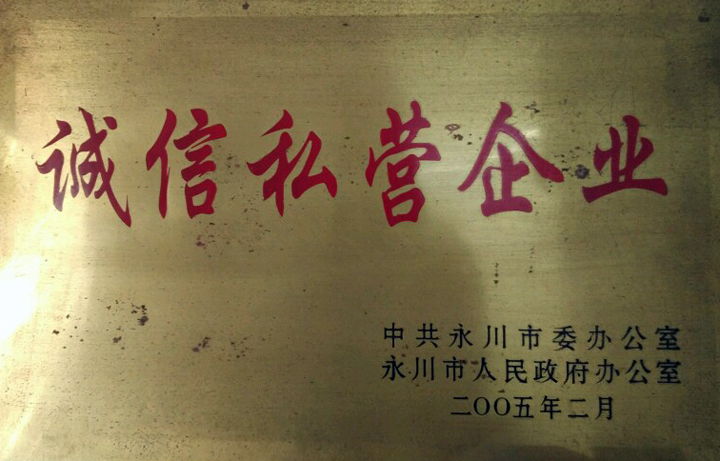 诚信私营企业
中共永川市委办公室
永川市人民政府办公室
二OO五年二月